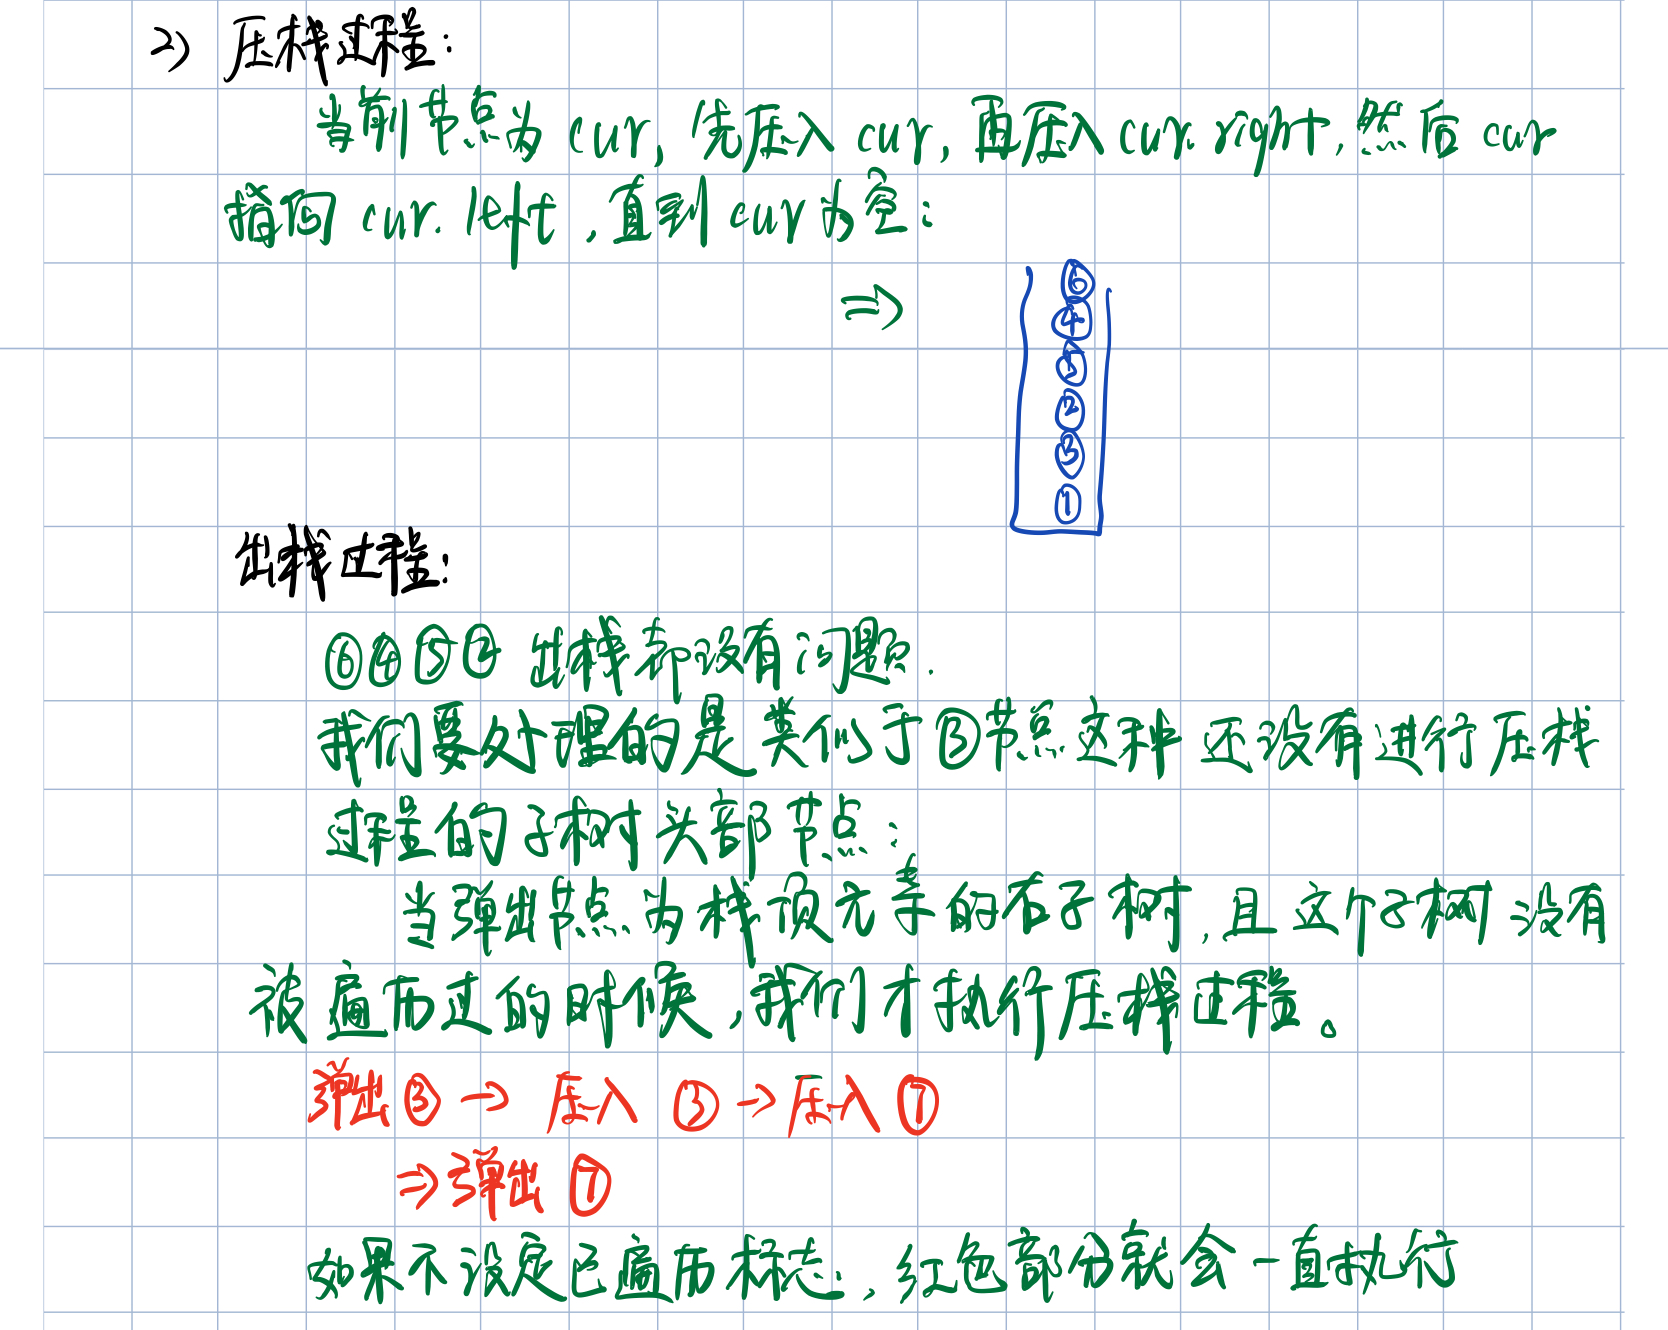 2) 压栈过程:
当前节点为 cur, 先压入 cur, 再压入 cur.right, 然后 cur
指向 cur.left, 直到 cur为空:
⇒
⑥
④
⑤
②
③
①
出栈过程:
⑥④⑤② 出栈都没有问题.
我们要处理的是类似于③节点这种还没有进行压栈
过程的子树头部节点:
当弹出节点为栈顶元素的右子树,且这个子树没有
被遍历过的时候,我们才执行压栈过程。
弹出③→ 压入 ③→压入⑦
⇒弹出 ⑦
如果不设定已遍历标志,红色部分就会一直执行